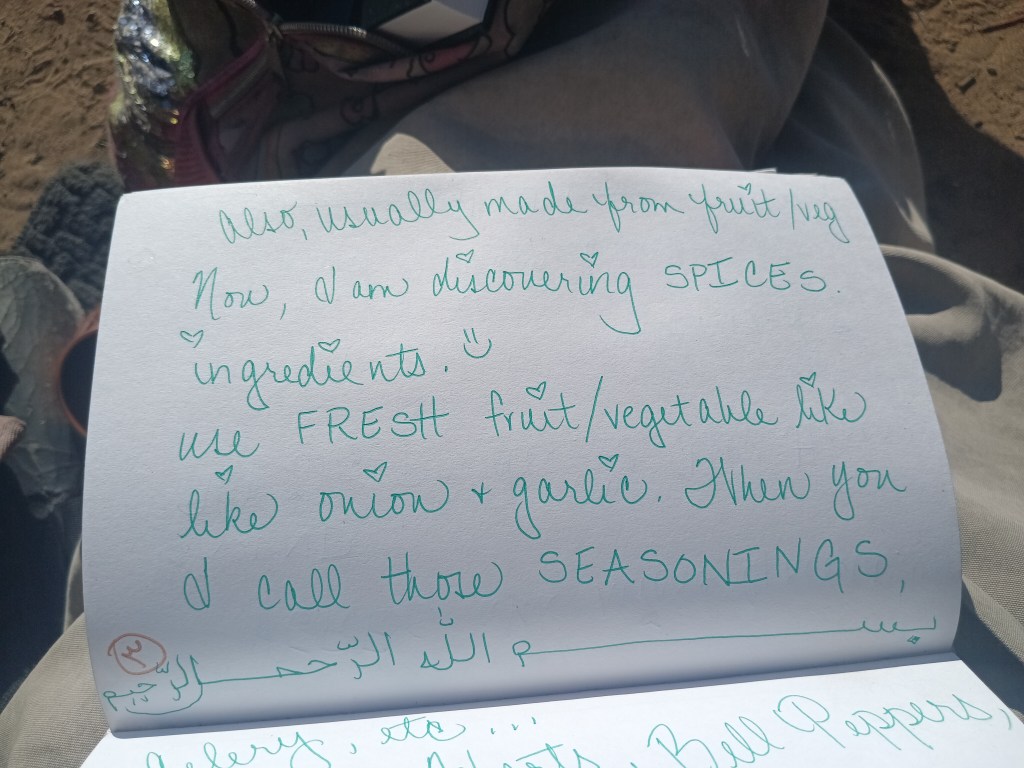 Also, usually made from fruit/veg
Now, I am discovering SPICES.
ingredients.
use FRESH fruit/vegetable like
like onion + garlic. When you
I call those SEASONINGS,
بسم الله الرّحمن الرّحيم
٣
Celery, etc...
Bell Peppers,